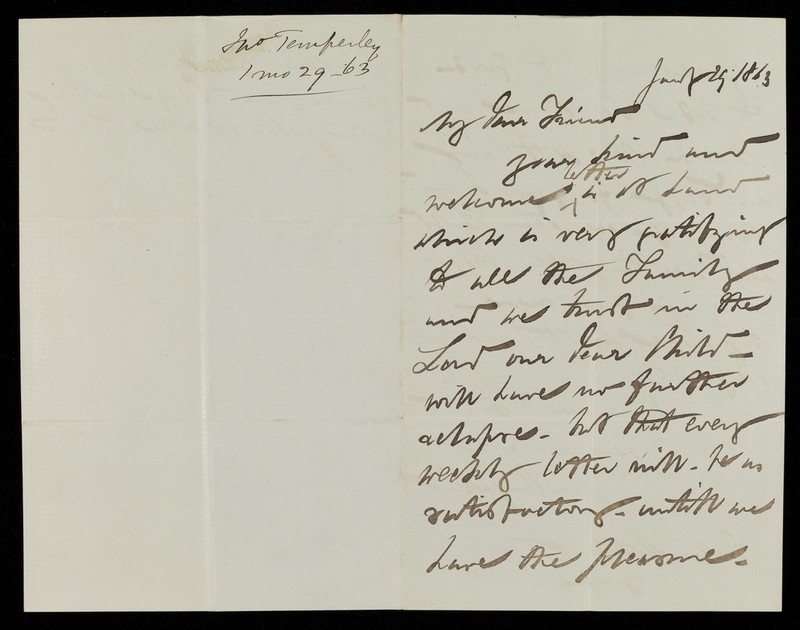 Jno Temperley
1 mo 29 - 63
Jany 29 1863
My Dear Friend
your kind and
welcome letter is at hand
which is very gratifying
to all the Family
and we trust in the
Lord our Dear Child -
will have no further
relapse - but that every
weekly letter will - be as
satisfactory - untill we
have the pleasure -